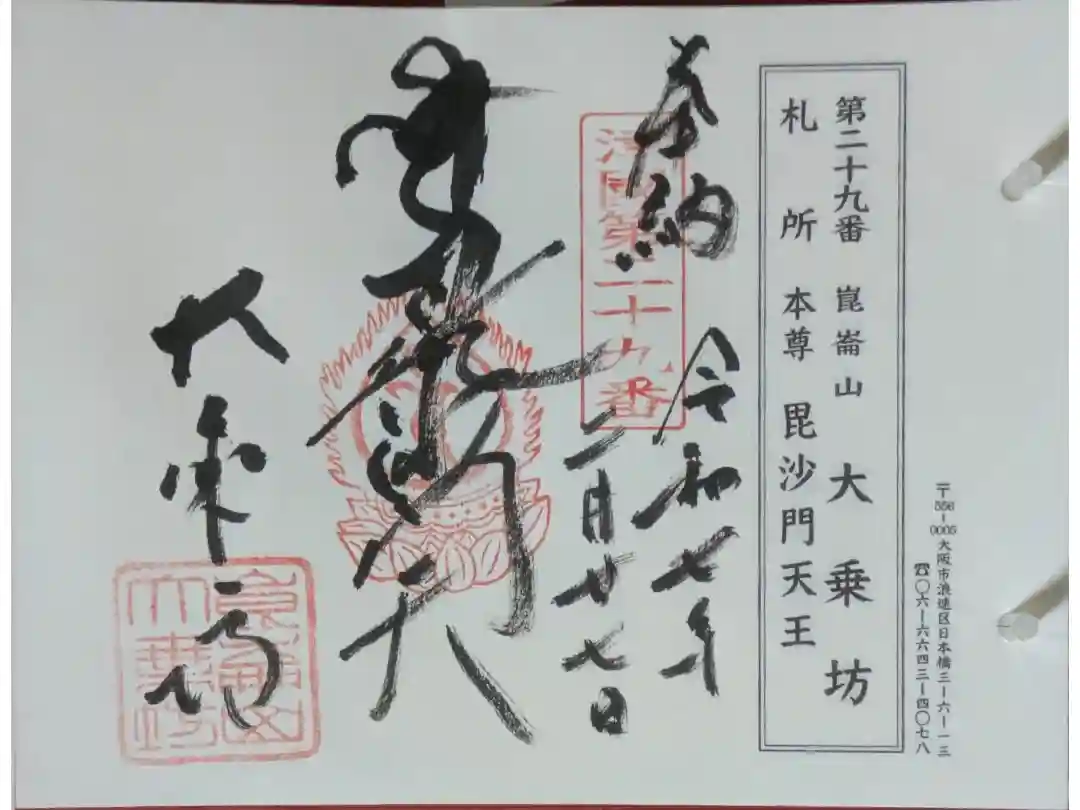 〒556-0005 大阪市浪速区日本橋三ー六ー一三
☎〇六ー六六四三ー四〇七八
第二十九番 崑崙山 大乗坊
札所 本尊 毘沙門天王
奉納 令和七年
津國第二十九番
二月廿七日
毘沙門天
大乗坊
崑崙山
大乗坊